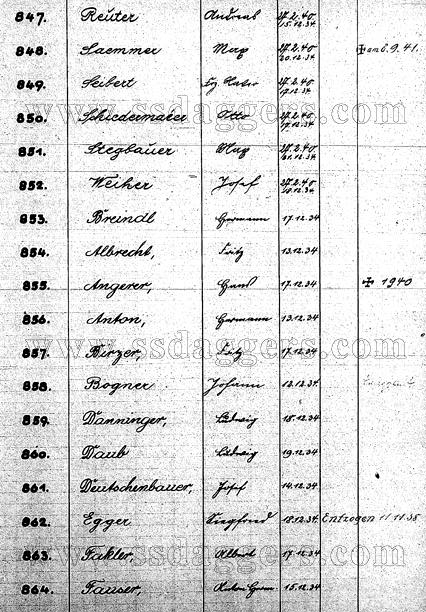 847. Reuter Andreas 27.2.40
15.12.34
848. Saemmer Max 27.2.40 ✠ am 6.9.41.
20.12.34
849. Seibert 27.2.40
17.12.34
www.ssdaggers.com
850. Schiedermaier Otto 27.2.40
17.12.34
851. Stegbauer Max 27.2.40
21.12.34
852. Weiher Josef 27.2.40
853. Breindl Hermann 17.12.34
854. Albrecht, Fritz 13.12.34
855. Angerer, Hans 17.12.34 ✠ 1940
856. Anton, Hermann 13.12.34
857. Birzer, Fritz 17.12.34
www.ssdaggers.com
858. Bogner Johann 12.12.34.
859. Danninger, Ludwig 18.12.34
860. Daub Ludwig 19.12.34
861. Deutschenbauer, Josef 14.12.34
862. Egger Siegfried 18.12.34. Entzogen 11.11.35
863. Fakler, Albert 17.12.34
www.ssdaggers.com
864. Fauser, 15.12.34